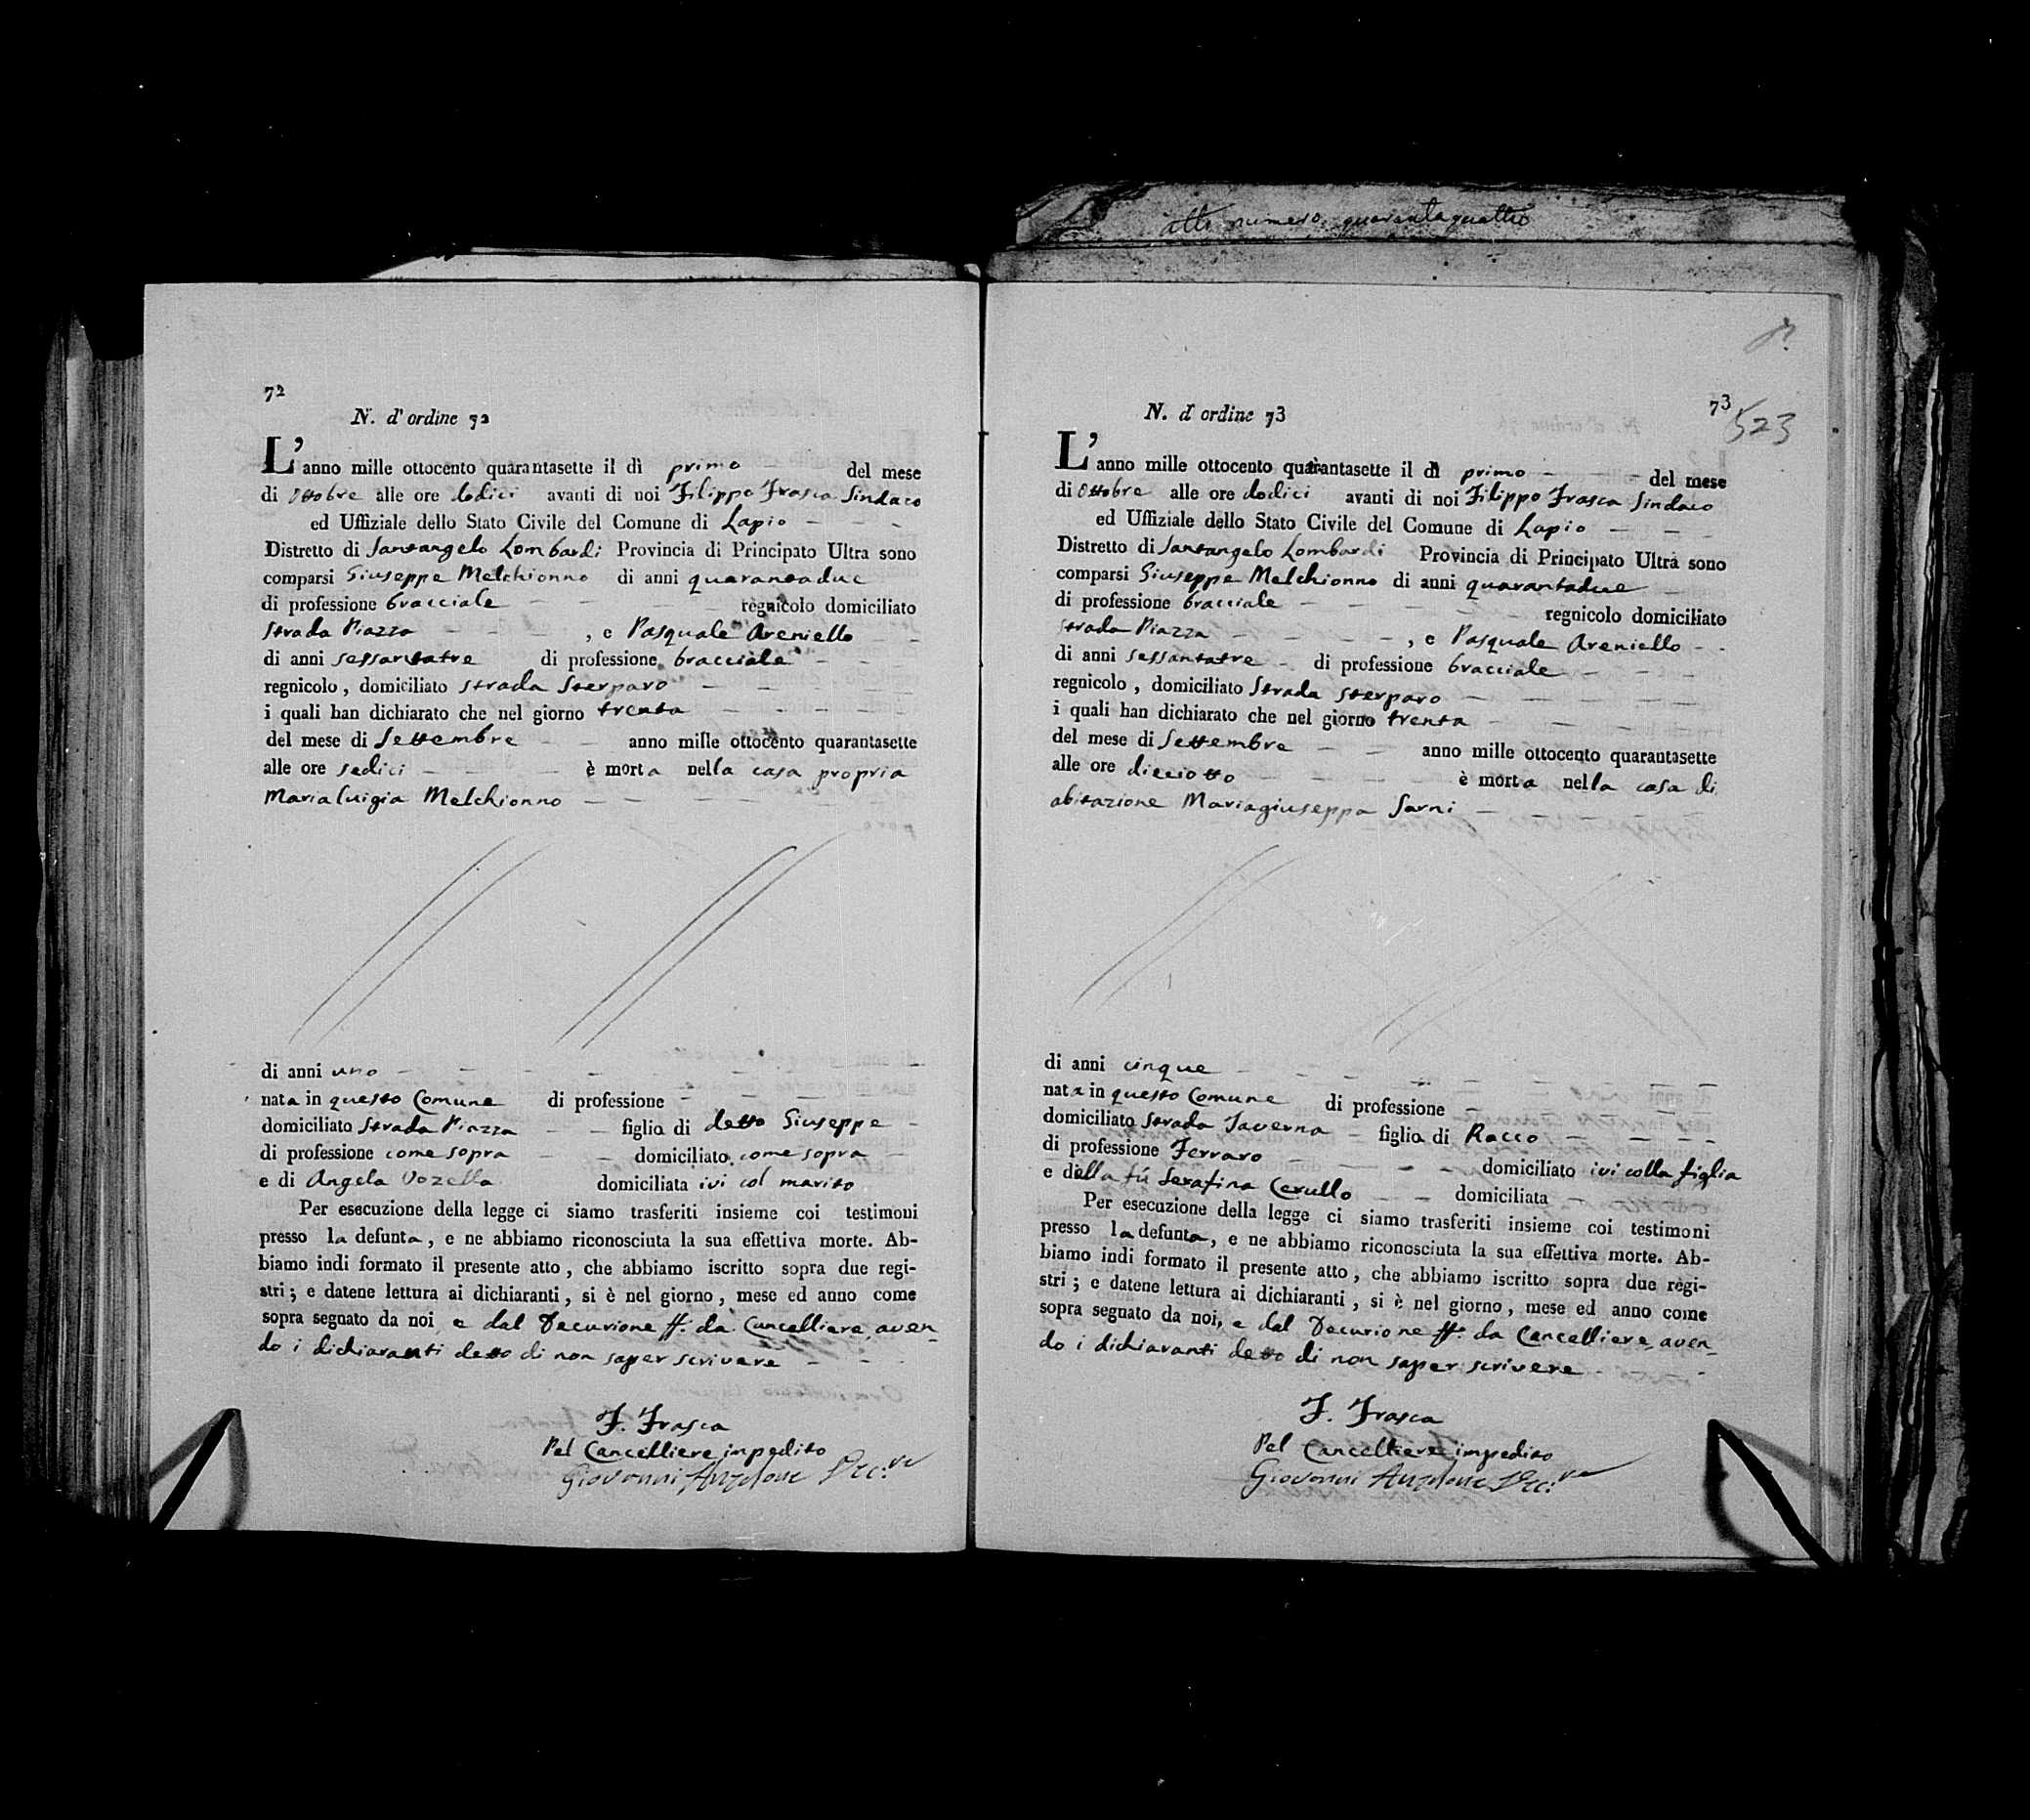 atto numero quarantaquattro
72
N. d'ordine 72
L'anno mille ottocento quarantasette il dì primo del mese
di Ottobre alle ore dodici avanti di noi Filippo Frasca Sindaco
ed Uffiziale dello Stato Civile del Comune di Lapio
Distretto di Santangelo Lombardi Provincia di Principato Ultra sono
comparsi Giuseppe Melchionno di anni quarantadue
di professione bracciale regnicolo domiciliato
Strada Piazza , e Pasquale Areniello
di anni sessantatre di professione bracciale
regnicolo, domiciliato Strada Sterparo
i quali han dichiarato che nel giorno trenta
del mese di Settembre anno mille ottocento quarantasette
alle ore sedici è morta nella casa propria
Marialuigia Melchionno
di anni uno
nata in questo Comune di professione
domiciliato Strada Piazza figlia di detto Giuseppe
di professione come sopra domiciliato come sopra
e di Angela Vozella domiciliata ivi col marito
Per esecuzione della legge ci siamo trasferiti insieme coi testimoni
presso la defunta, e ne abbiamo riconosciuta la sua effettiva morte. Ab-
biamo indi formato il presente atto, che abbiamo iscritto sopra due regi-
stri; e datene lettura ai dichiaranti, si è nel giorno, mese ed anno come
sopra segnato da noi e dal Decurione ff. da Cancelliere, aven-
do i dichiaranti detto di non saper scrivere
F. Frasca
Pel Cancelliere impedito
Giovanni Anzelone Dec.re
73
523
N. d'ordine 73
L'anno mille ottocento quarantasette il dì primo del mese
di Ottobre alle ore dodici avanti di noi Filippo Frasca Sindaco
ed Uffiziale dello Stato Civile del Comune di Lapio
Distretto di Santangelo Lombardi Provincia di Principato Ultra sono
comparsi Giuseppe Melchionno di anni quarantadue
di professione bracciale regnicolo domiciliato
Strada Piazza , e Pasquale Areniello
di anni sessantatre di professione bracciale
regnicolo, domiciliato Strada Sterparo
i quali han dichiarato che nel giorno trenta
del mese di Settembre anno mille ottocento quarantasette
alle ore dieciotto è morta nella casa di
abitazione Mariagiuseppa Sarni
di anni cinque
nata in questo Comune di professione
domiciliato Strada Taverna figlia di Rocco
di professione Ferraro domiciliato ivi colla figlia
e della fù Serafina Cerullo domiciliata
Per esecuzione della legge ci siamo trasferiti insieme coi testimoni
presso la defunta, e ne abbiamo riconosciuta la sua effettiva morte. Ab-
biamo indi formato il presente atto, che abbiamo iscritto sopra due regi-
stri; e datene lettura ai dichiaranti, si è nel giorno, mese ed anno come
sopra segnato da noi, e dal Decurione ff. da Cancelliere, aven-
do i dichiaranti detto di non saper scrivere
F. Frasca
Pel Cancelliere impedito
Giovanni Anzelone Dec.re